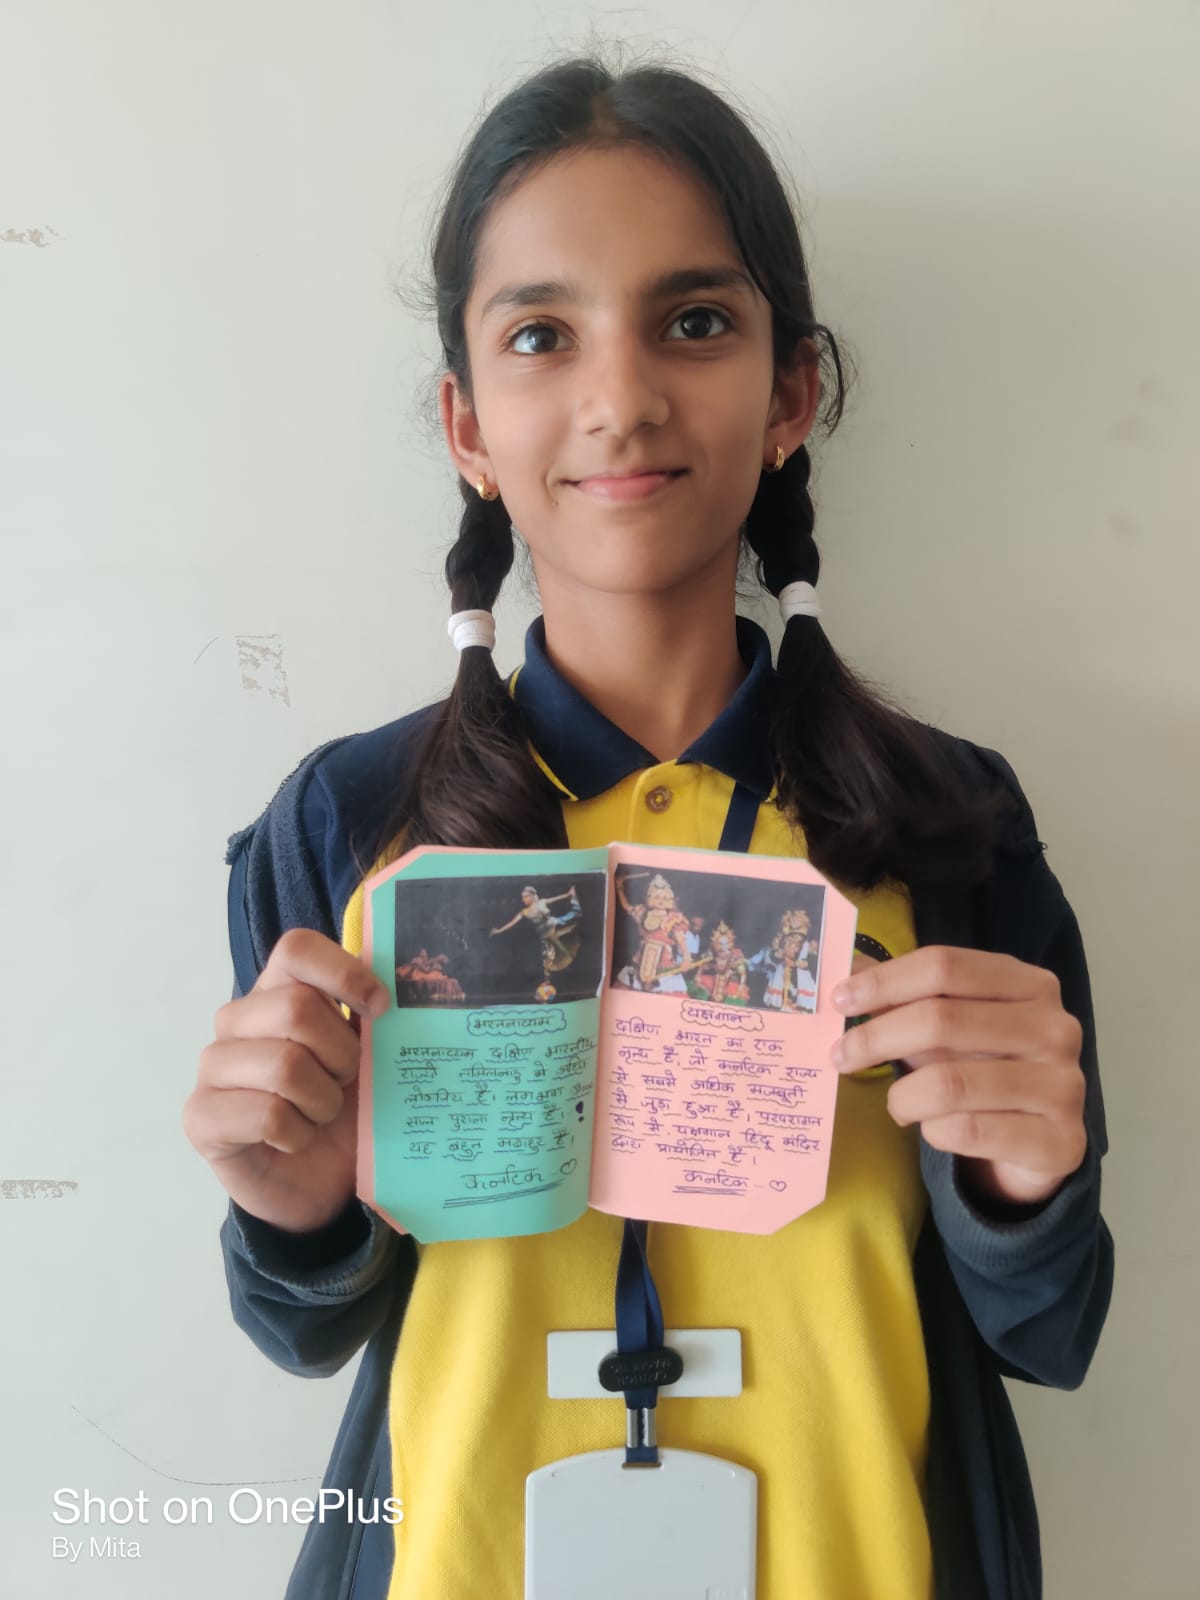 भरतनाट्यम
भरतनाट्यम दक्षिण भारतीय
राज्यों तमिलनाडु मे अधिक
लोकप्रिय है। लगभग
साल पुराना नृत्य है।
यह बहुत मशहूर है।
कर्नाटिक
यक्षगान
दक्षिण भारत का एक
नृत्य है, जो कर्नाटक राज्य
से सबसे अधिक मजबूती
से जुड़ा हुआ है। परंपरागत
रूप से, यक्षगान हिंदू मंदिर
द्वारा प्रायोजित है।
कर्नाटिक ...
Shot on OnePlus
By Mita